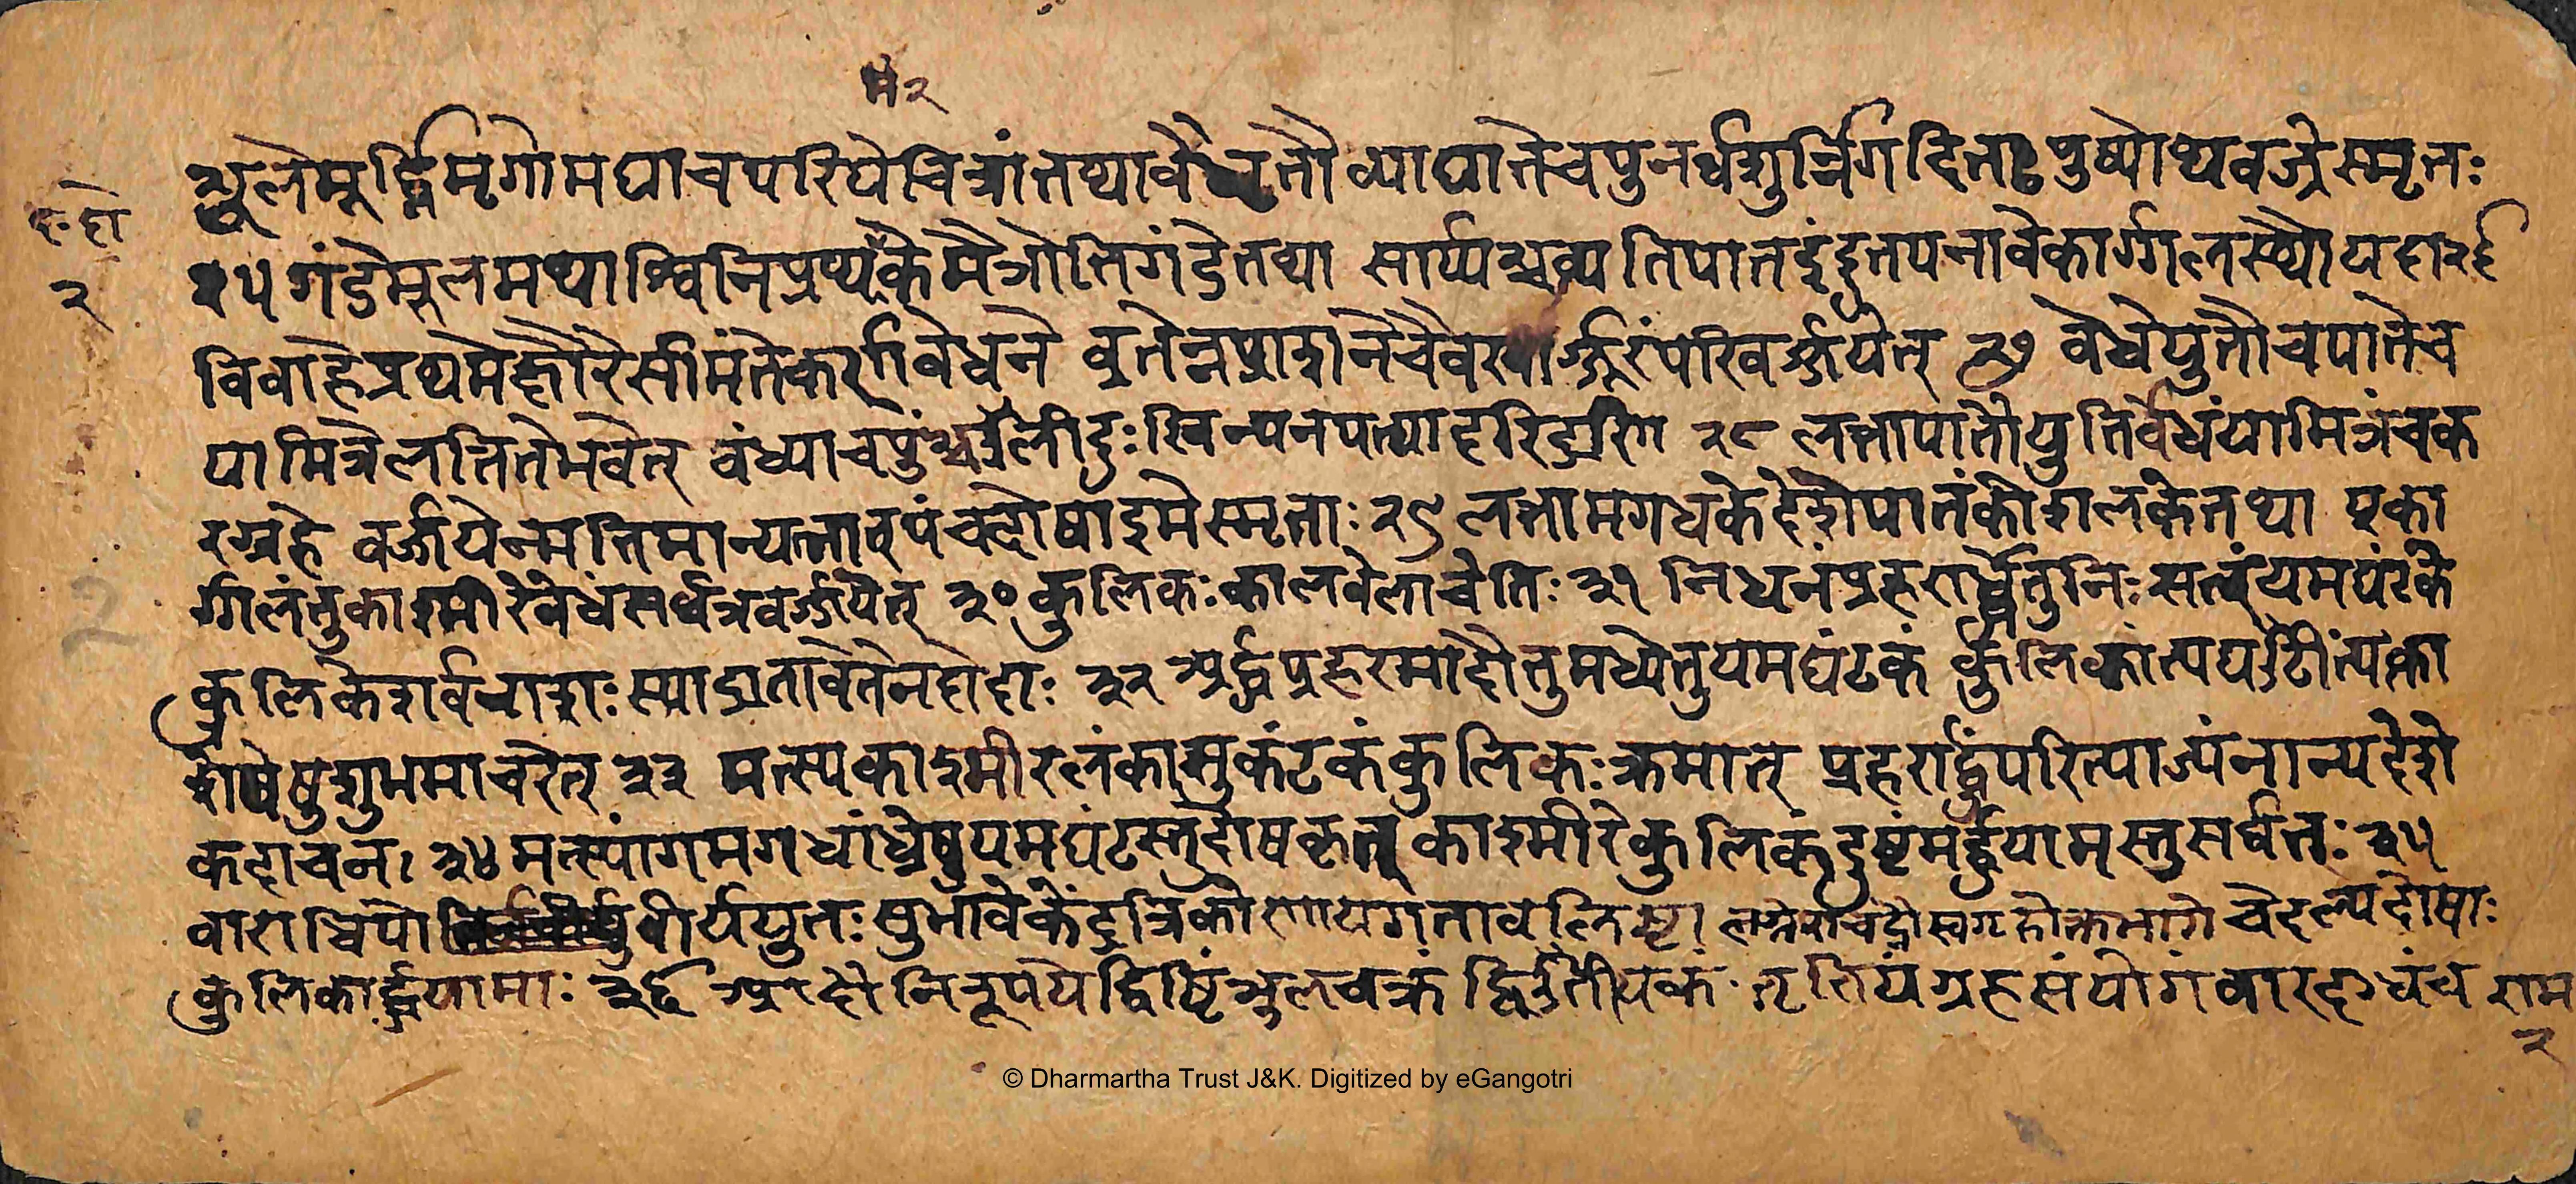 म २
शूलेमूर्द्ध्निमृगोमघाचपरिघेचित्रांतथावैधृतौव्याघातेचपुनर्वशुर्न्निगदिताःपुष्योथवज्रेस्मृतः
ह॰दो
२
२५गंडेमूलमथाश्विनिप्रथमकेमैत्रोतिगंडेतथा सार्प्पश्चव्यतिपातइंदुतपनावेकार्ग्गलस्थौयदा२६
विवाहेप्रथमेक्षौरेसीमंतेकर्णवेधने व्रतेन्नप्राशनेचैवखार्ज्जूरंपरिवर्ज्जयेत् २७ वेधेयुतौचपातेच
यामित्रेलत्तितेभवेत् वंध्याचपुंश्चलीदुःखिन्यनपत्यादरिद्रिणी २८ लत्तापातौयुतिर्वेधंयामित्रंचक
रग्रहे वर्जयेन्मतिमान्यत्नात्पंचदोषाइमेस्मृताः२९ लत्तामगधकेदेशेपातंकोशलकेतथा एका
र्ग्गलंतुकाश्मीरेवेधंसर्वत्रवर्ज्जयेत् ३०कुलिकःकालवेलाचेतिः३१ निधनंप्रहरार्द्धेतुनिःसत्वंयमघंटके
कुलिकेसर्वनाशःस्याद्रातावेतेनदोदाः ३२ अर्द्धप्रहरमादौतुमध्येतुयमघंटकं कुलिकांत्यघटींत्यक्त्वा
शेषेषुशुभमाचरेत् ३३ मत्स्यकाश्मीरलंकासुकंटकंकुलिकःक्रमात् प्रहरार्द्धंपरित्याज्यंनान्यदेशे
कदाचन। ३४मत्स्यांगमगधांध्रेषुयमघंटस्तुदोषकृत् काश्मीरेकुलिकंदुष्टंमर्द्धयामस्तुसर्वतः३५
वाराधिपोवीर्ययुतःसुभावेकेंद्रत्रिकोणायगतावलिष्टा लग्नेशचंद्रौस्वगृहोक्तभागेचेदल्पदोषाः
कुलिकार्द्धयामाः ३६ आदौनिरूपयेद्विष्टिंशूलचक्रंद्वितीयकं तृतियंग्रहसंयोगंवारदग्धंच राम
२
© Dharmartha Trust J&K. Digitized by eGangotri